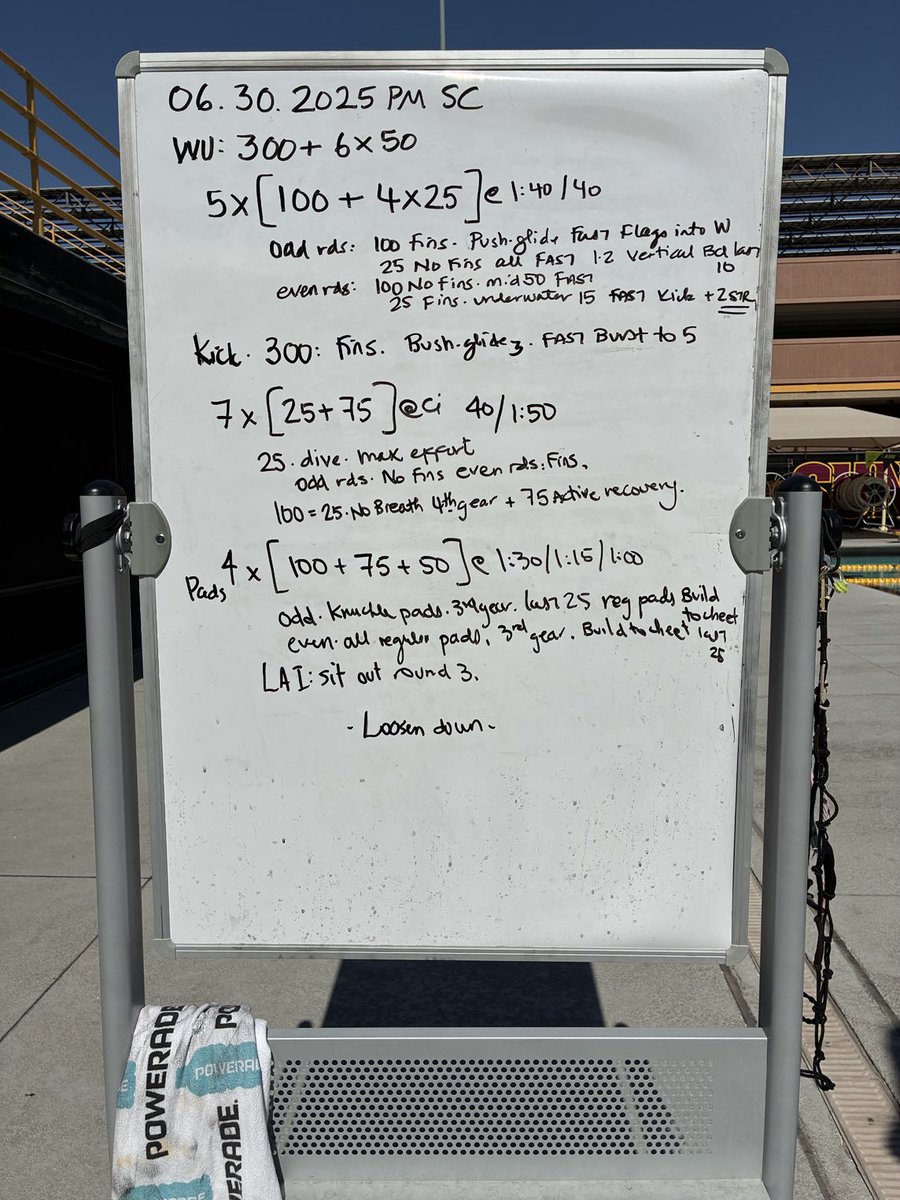 06.30.2025 PM SC
WU: 300 + 6 x 50
5 x [100 + 4 x 25] @ 1:40 / 40
odd rds: 100 Fins. Push-glide Fast Flags into W
25 No Fins all FAST 1-2 Vertical last
10
even rds: 100 No Fins. mid 50 FAST
25 Fins. underwater 15 FAST Kick + 2 STR
Kick. 300: Fins. Push-glide 3. FAST Burst to 5
7 x [25 + 75] @ci 40 / 1:50
25. dive. max effort
odd rds. No Fins even rds: Fins.
100 = 25. No Breath 4th gear + 75 Active recovery.
Pads 4 x [100 + 75 + 50] @ 1:30 / 1:15 / 1:00
odd. Knuckle pads. 3rd gear. last 25 reg pads Build
to cheet
even. all regular pads. 3rd gear. Build to cheet last
25
LAI: sit out round 3.
- Loosen down -
POWERADE
POWERADE
POWERADE.